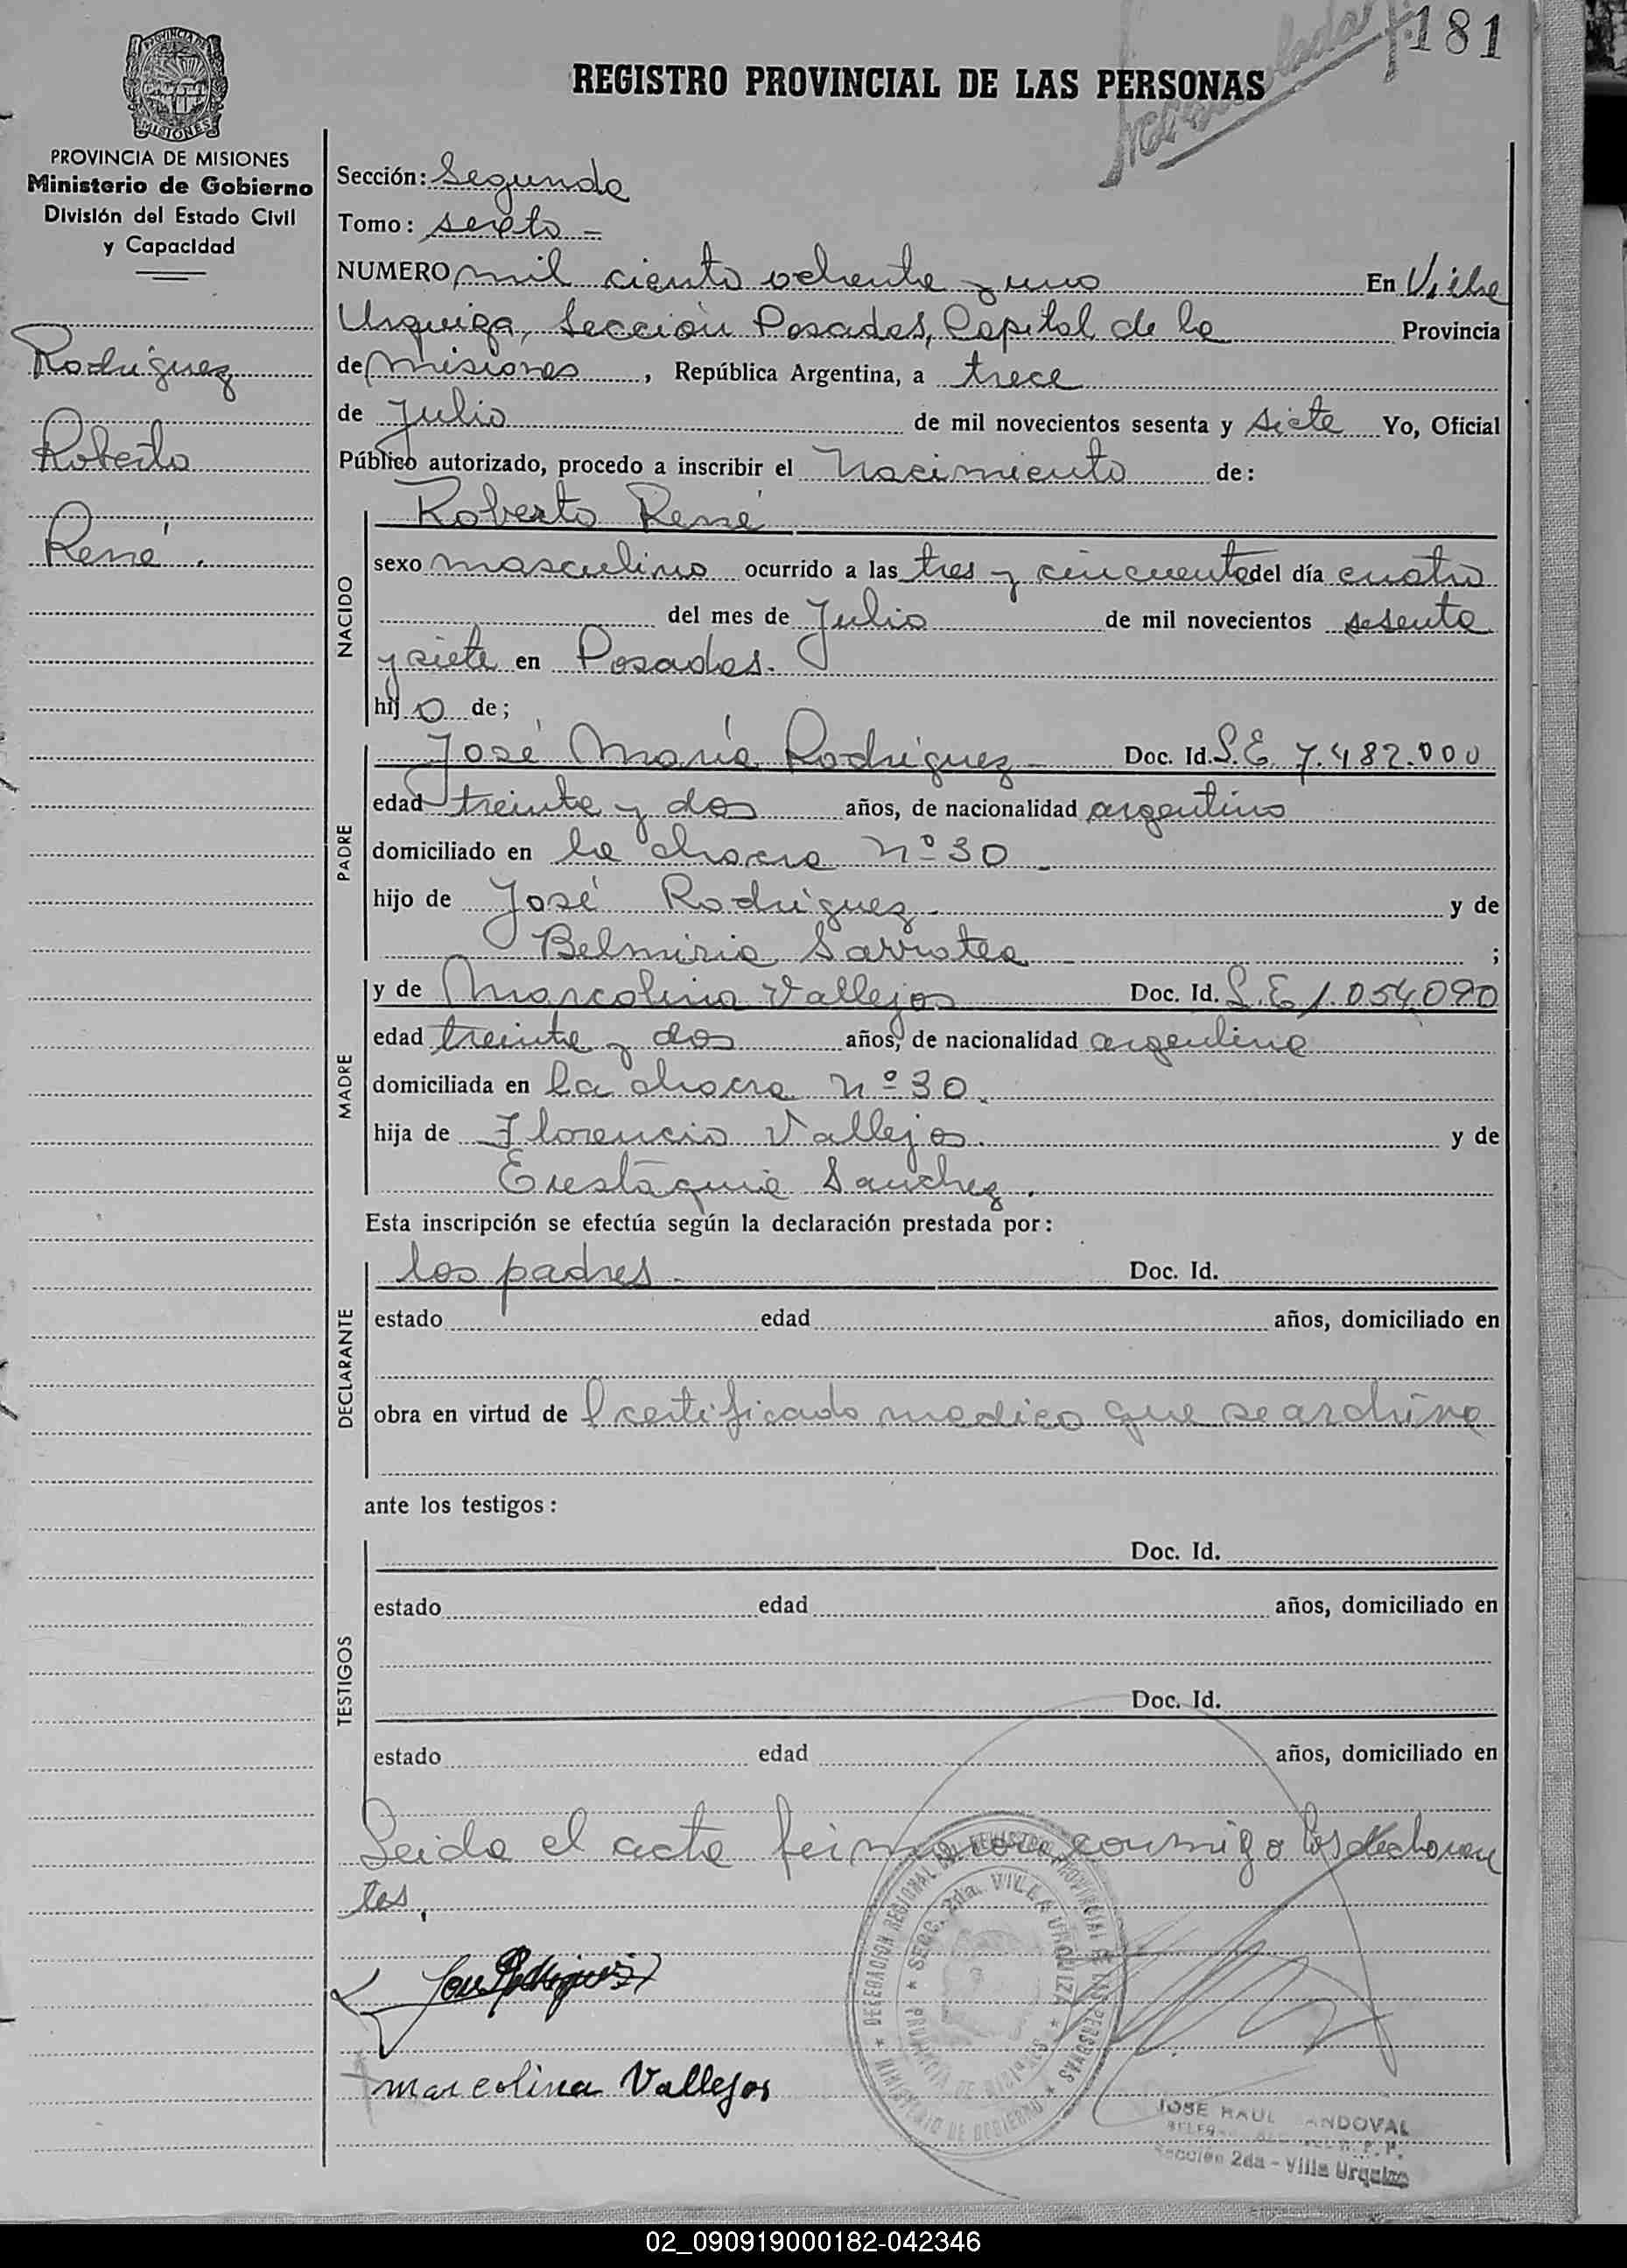 181
REGISTRO PROVINCIAL DE LAS PERSONAS
PROVINCIA DE MISIONES
MISIONES
PROVINCIA DE MISIONES
Ministerio de Gobierno
División del Estado Civil
y Capacidad
Rodriguez
Roberto
René.
Sección: Segunda
Tomo: sexto =
NUMERO mil ciento ochenta y uno En Villa
Urquiza, Sección Posadas, Capital de la Provincia
de Misiones, República Argentina, a trece
de Julio de mil novecientos sesenta y siete Yo, Oficial
Público autorizado, procedo a inscribir el Nacimiento de:
NACIDO
Roberto René
sexo masculino ocurrido a las tres y cincuenta del día cuatro
del mes de Julio de mil novecientos sesenta
y siete en Posadas.
hijo de;
PADRE
José María Rodriguez - Doc. Id. L.E. 7.482.000
edad treinta y dos años, de nacionalidad argentino
domiciliado en la chacra nº 30
hijo de José Rodriguez - y de
Belmiria Sarratea ;
MADRE
y de Marcolina Vallejos Doc. Id. L.E 1.054.090
edad treinta y dos años, de nacionalidad argentina
domiciliada en la chacra nº 30.
hija de Florencio Vallejos. y de
Eustaquia Sanchez.
Esta inscripción se efectúa según la declaración prestada por:
DECLARANTE
los padres - Doc. Id.
estado edad años, domiciliado en
obra en virtud de l certificado medico que se archiva
ante los testigos:
TESTIGOS
Doc. Id.
estado edad años, domiciliado en
Doc. Id.
estado edad años, domiciliado en
Leida el acta firmaron conmigo los declaran
tes.
DELEGACION REGIONAL DEL REGISTRO PROVINCIAL DE LAS PERSONAS
MINISTERIO DE GOBIERNO
SECC. 2da. VILLA URQUIZA
PROVINCIA DE MISIONES
Jose Rodriguez
marcolina Vallejos
JOSE RAUL SANDOVAL
Sección 2da - Villa Urquiza
02_090919000182-042346